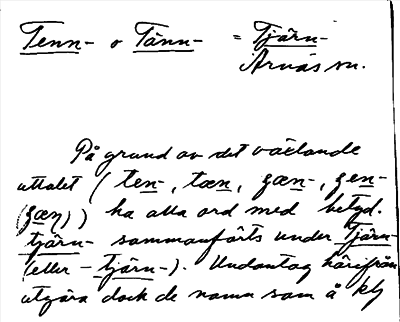 Tenn- o Tänn- = Tjärn-
Arnäs sn.
På grund av det växlande
uttalet (ten-, tæn-, ʒæn-, ʒen-
(ʒæṇ)) ha alla ord med betyd.
tjärn- sammanförts under Tjärn-
(eller -tjärn-). Undantag härifrån
utgöra dock de namn som å kbl